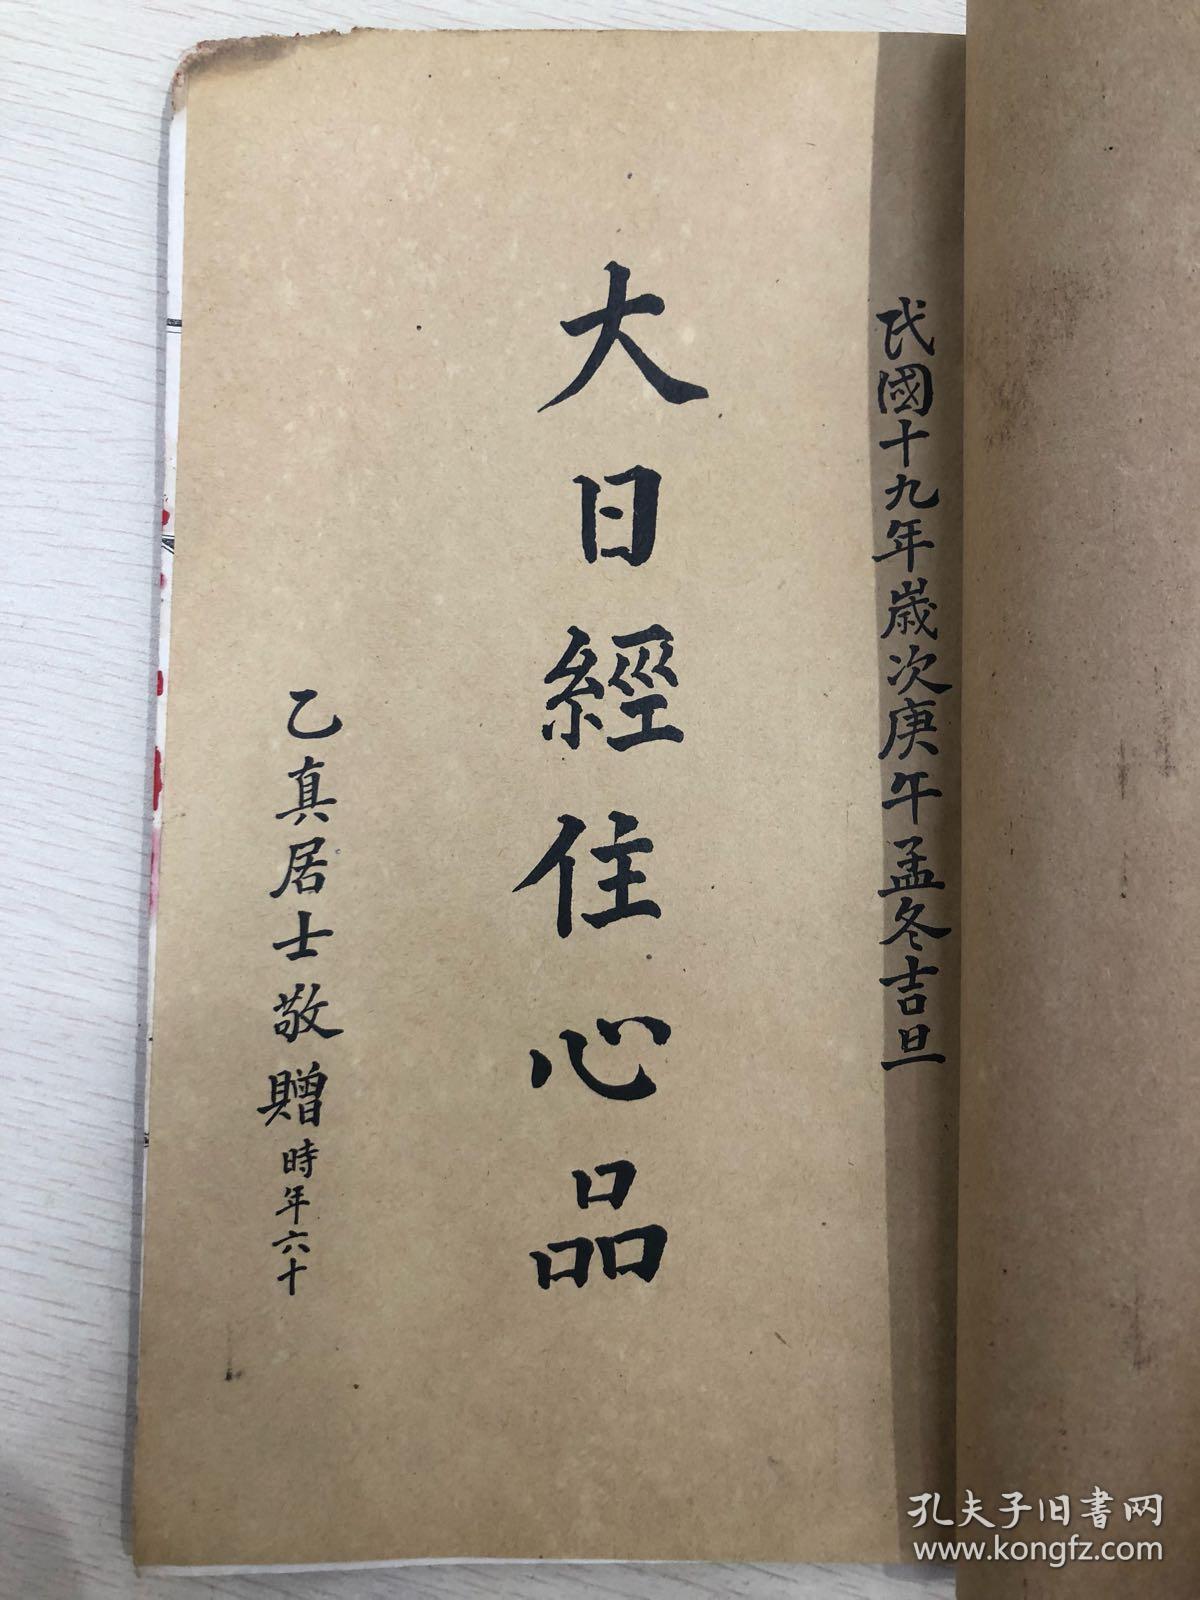 民國十九年歲次庚午孟冬吉旦
大日經住心品
乙真居士敬贈時年六十
孔夫子旧书网
www.kongfz.com